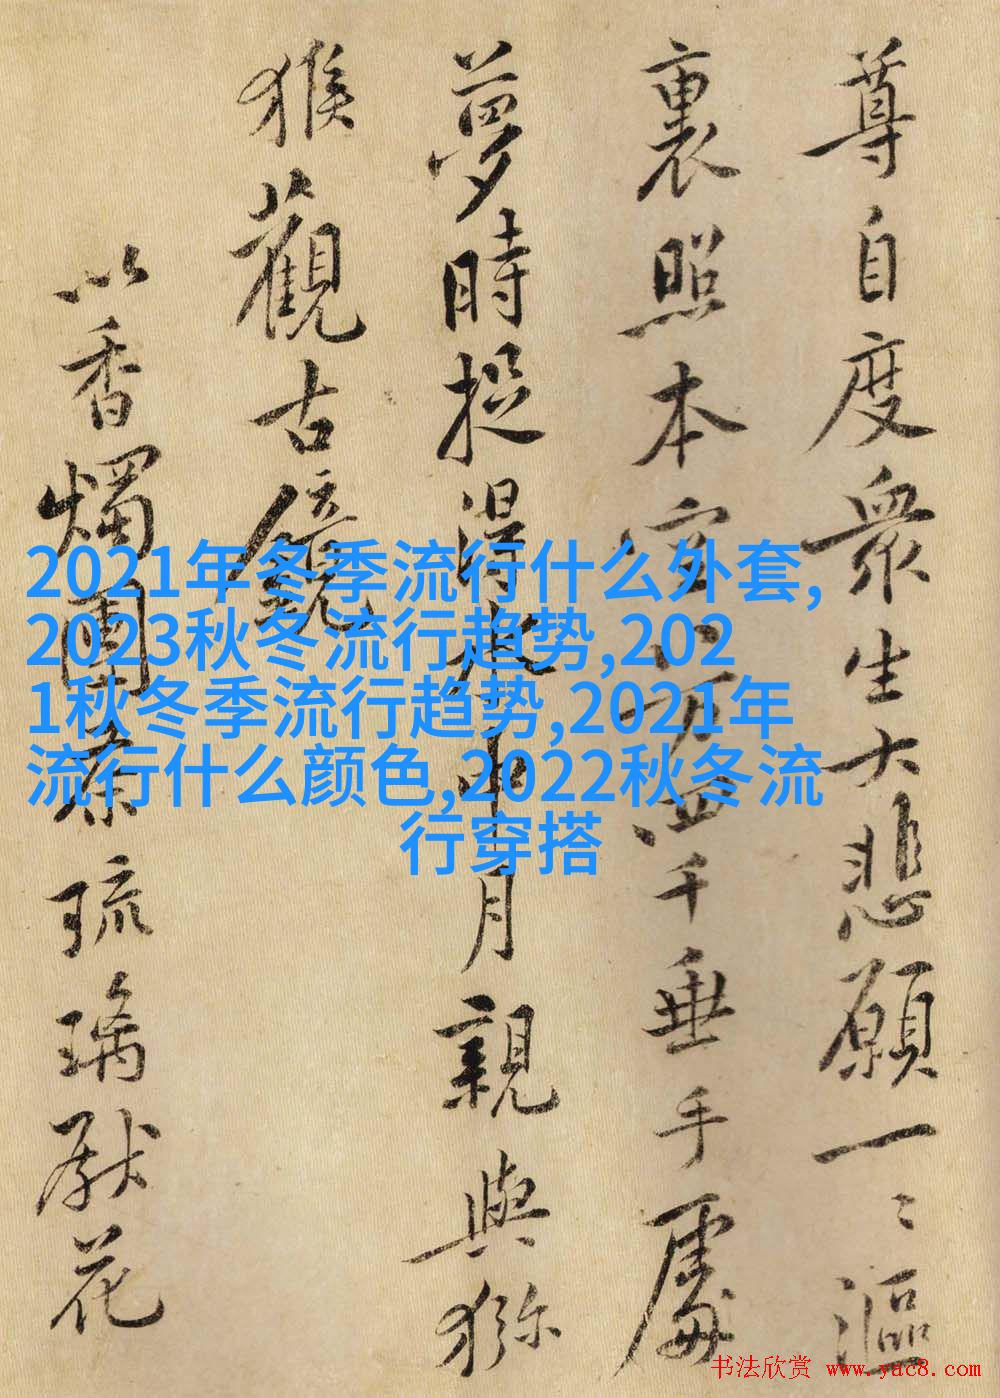 尊自度衆生大悲願一〻漚
裏照本空八万四千垂手處
夢時捉得水中月親與獼
猴觀古鏡
以香燭團茶琉璃獻花
2021年冬季流行什么外套,
2023秋冬流行趋势,202
1秋冬季流行趋势,2021年
流行什么颜色,2022秋冬流
行穿搭
书法欣赏 www.yac8.com